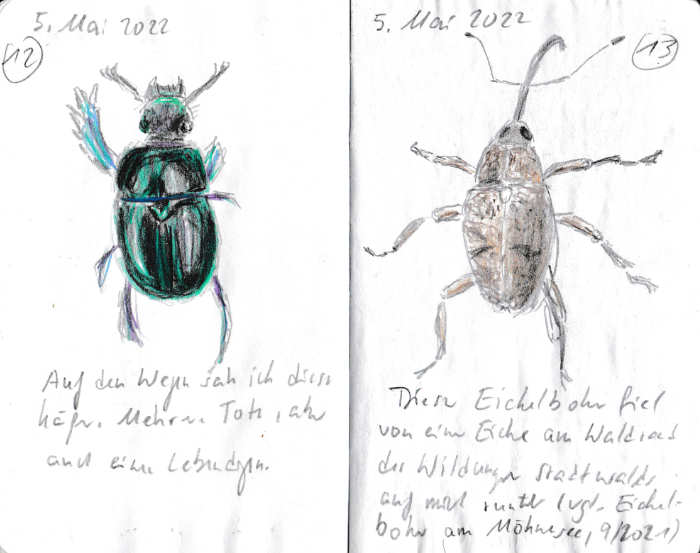 5. Mai 2022
12
Auf den Wegen sah ich diese
Käfer. Mehrere Tote, aber
auch einen Lebendigen.
5. Mai 2022
13
Dieser Eichelbohrer fiel
von einer Eiche am Waldrand
des Wildunger Stadtwalds
auf mich runter (vgl. Eichel-
bohrer am Möhnesee, 9/2021)